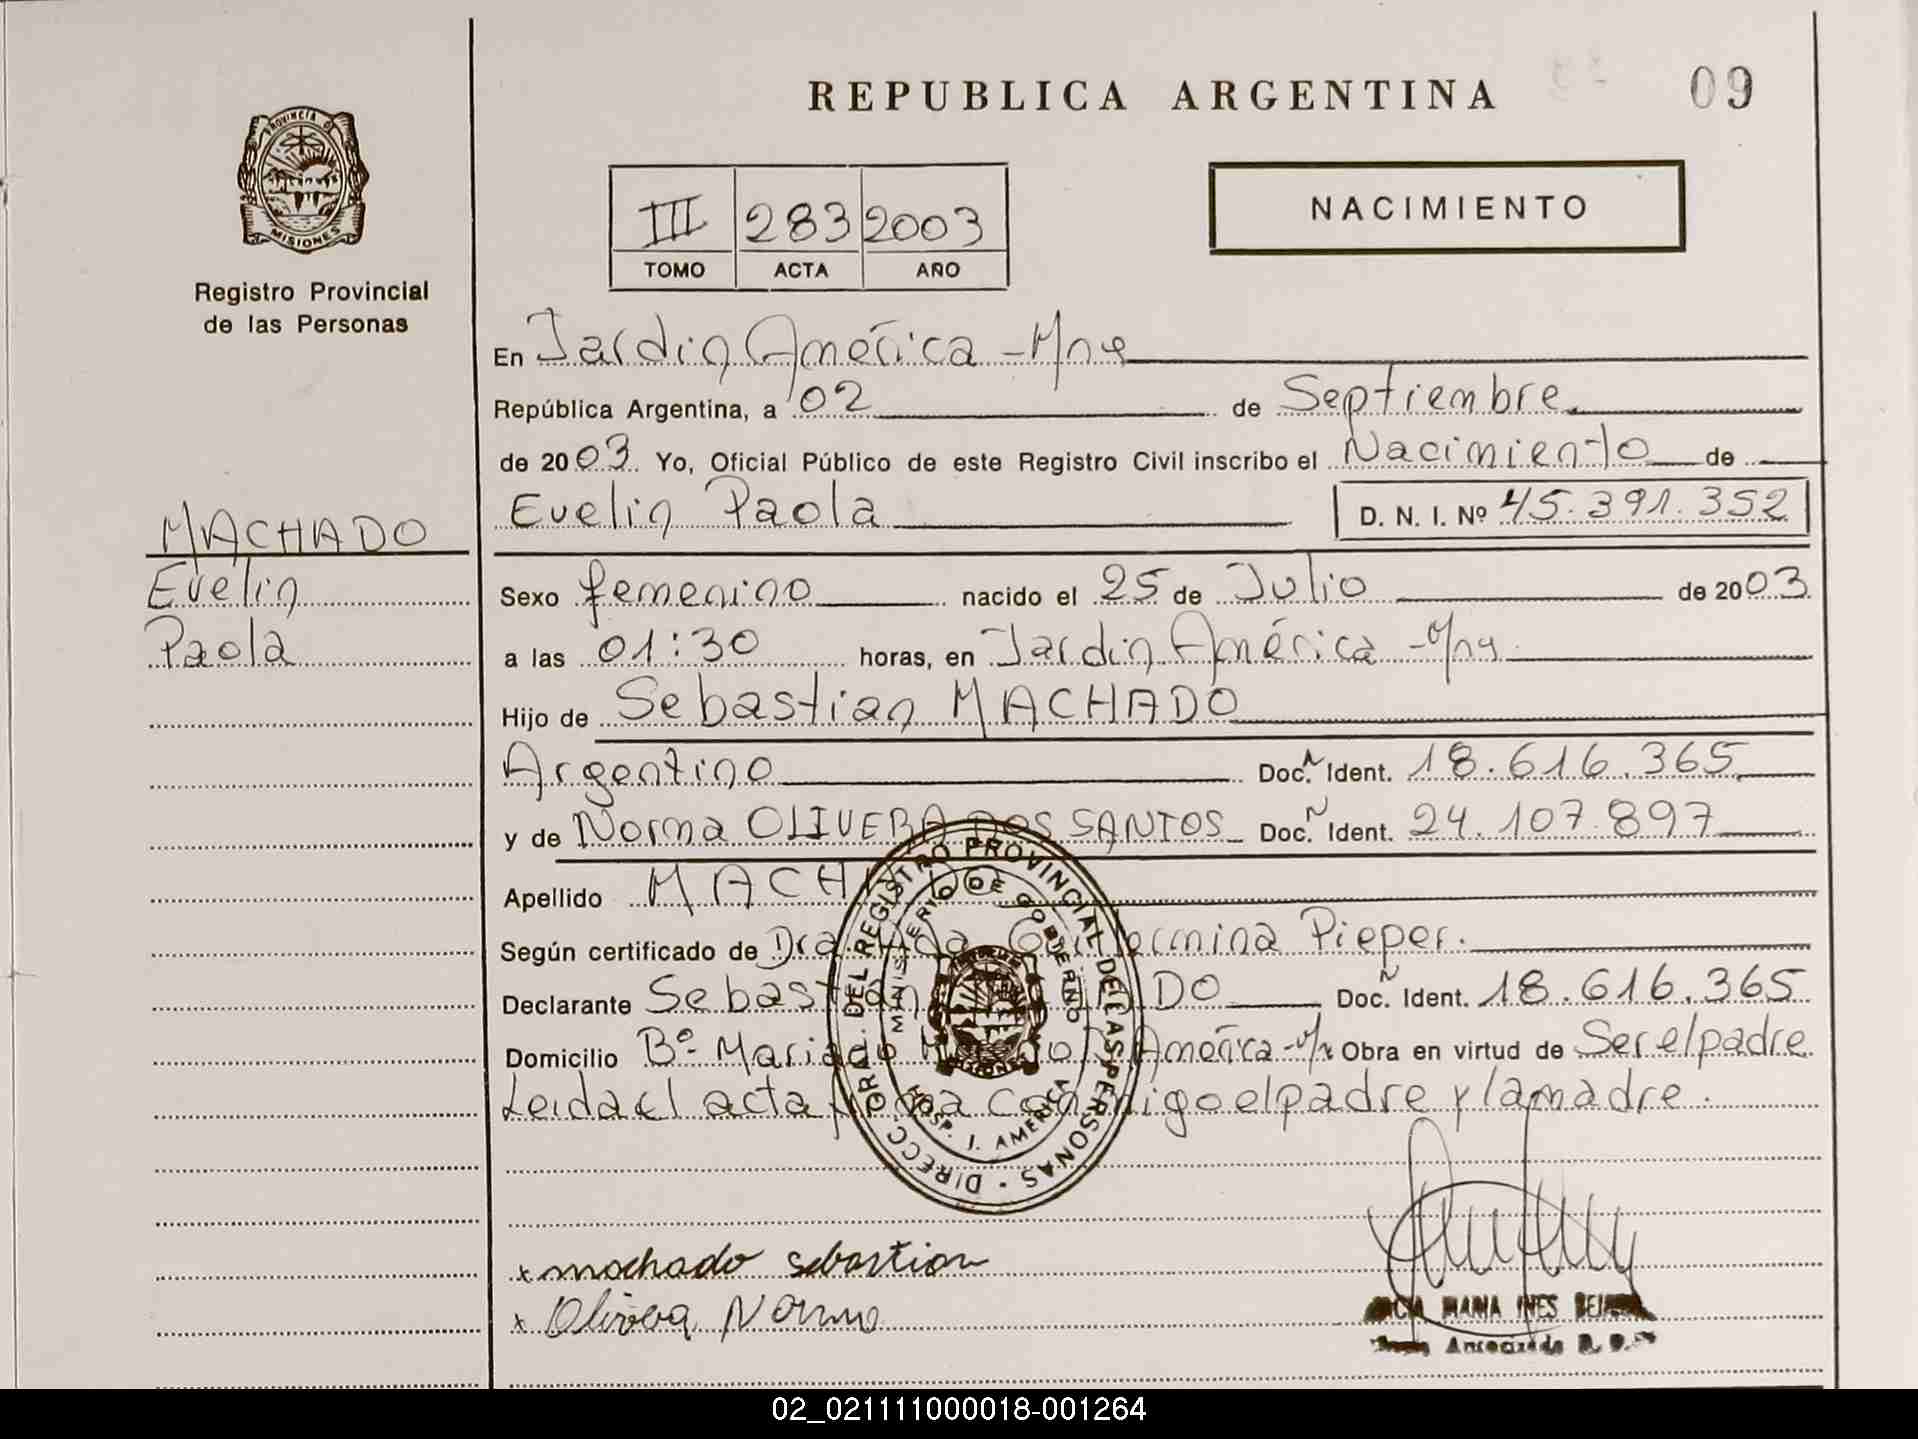 REPUBLICA ARGENTINA
09
PROVINCIA DE
MISIONES
Registro Provincial
de las Personas
III 283 2003
TOMO ACTA AÑO
NACIMIENTO
En Jardin América - Mnes
República Argentina, a 02 de Septiembre
de 2003 Yo, Oficial Público de este Registro Civil inscribo el Nacimiento de
Evelin Paola D. N. I. Nº 45.391.352
MACHADO
Evelin
Paola
Sexo femenino nacido el 25 de Julio de 2003
a las 01:30 horas, en Jardin América - Mns
Hijo de Sebastian MACHADO
Argentino Doc. Ident. 18.616.365
y de Norma OLIVERA DOS SANTOS Doc. Ident. 24.107.897
Apellido MACH
Según certificado de Dra. Guillermina Pieper.
Declarante Sebastian DO Doc. Ident. 18.616.365
Domicilio Bº Mariano América - Obra en virtud de Ser el padre
Leida el acta firma conmigo el padre y la madre.
DIRECC. GRAL. DEL REGISTRO PROVINCIAL DE LAS PERSONAS
MINISTERIO DE GOBIERNO
HOSP. J. AMERICA
x machado sebastian
x Olivera Norma
MARIA INES
02_021111000018-001264